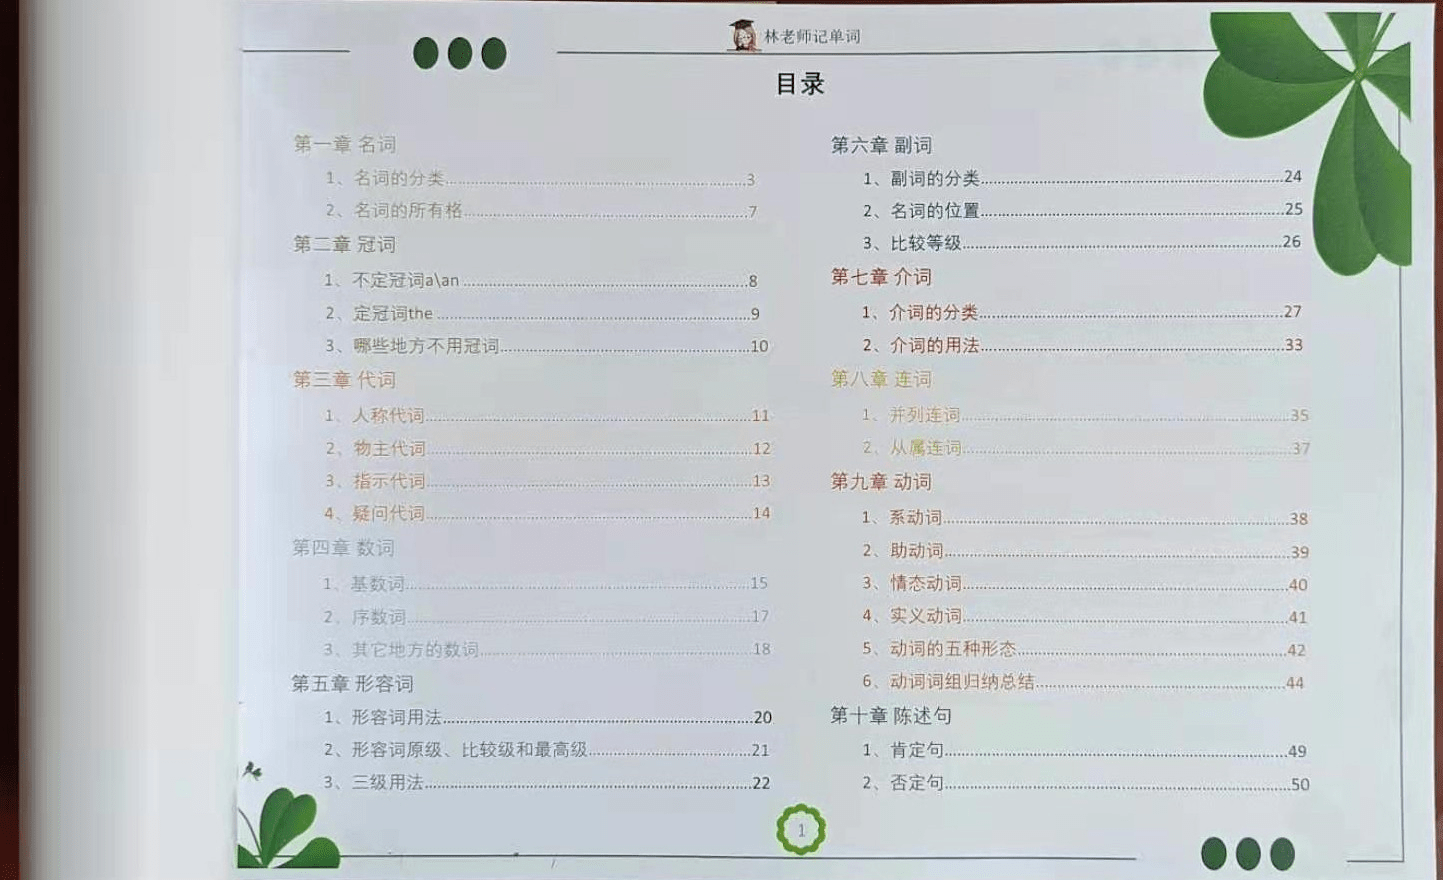 林老师记单词
目录
第一章 名词
1、名词的分类……3
2、名词的所有格……7
第二章 冠词
1、不定冠词a\an……8
2、定冠词the……9
3、哪些地方不用冠词……10
第三章 代词
1、人称代词……11
2、物主代词……12
3、指示代词……13
4、疑问代词……14
第四章 数词
1、基数词……15
2、序数词……17
3、其它地方的数词……18
第五章 形容词
1、形容词用法……20
2、形容词原级、比较级和最高级……21
3、三级用法……22
第六章 副词
1、副词的分类……24
2、名词的位置……25
3、比较等级……26
第七章 介词
1、介词的分类……27
2、介词的用法……33
第八章 连词
1、并列连词……35
2、从属连词……37
第九章 动词
1、系动词……38
2、助动词……39
3、情态动词……40
4、实义动词……41
5、动词的五种形态……42
6、动词词组归纳总结……44
第十章 陈述句
1、肯定句……49
2、否定句……50
1